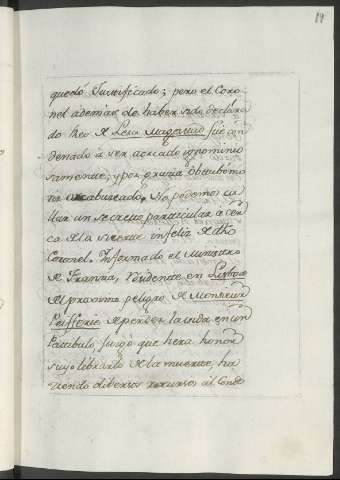 quedó Justificado; pero el Coro-
nel ademas de haber sido declara-
do Reo de Lesa Magestad fue con-
denado á ser aorcado ignominio-
samente; y por gracia obtubo mo-
rir arcabuceado. No podemos ca-
llar un secreto particular á cer-
ca de la suerte infeliz de dho
Coronel. Informado el Ministro
de Francia, residente en Lisboa
del proximo peligro de Monsieur
Peifferie de perder la vida en un
Patibulo, juzgó que hera honor
suyo librarlo de la muerte, ha-
viendo diberсos recursos al Conde